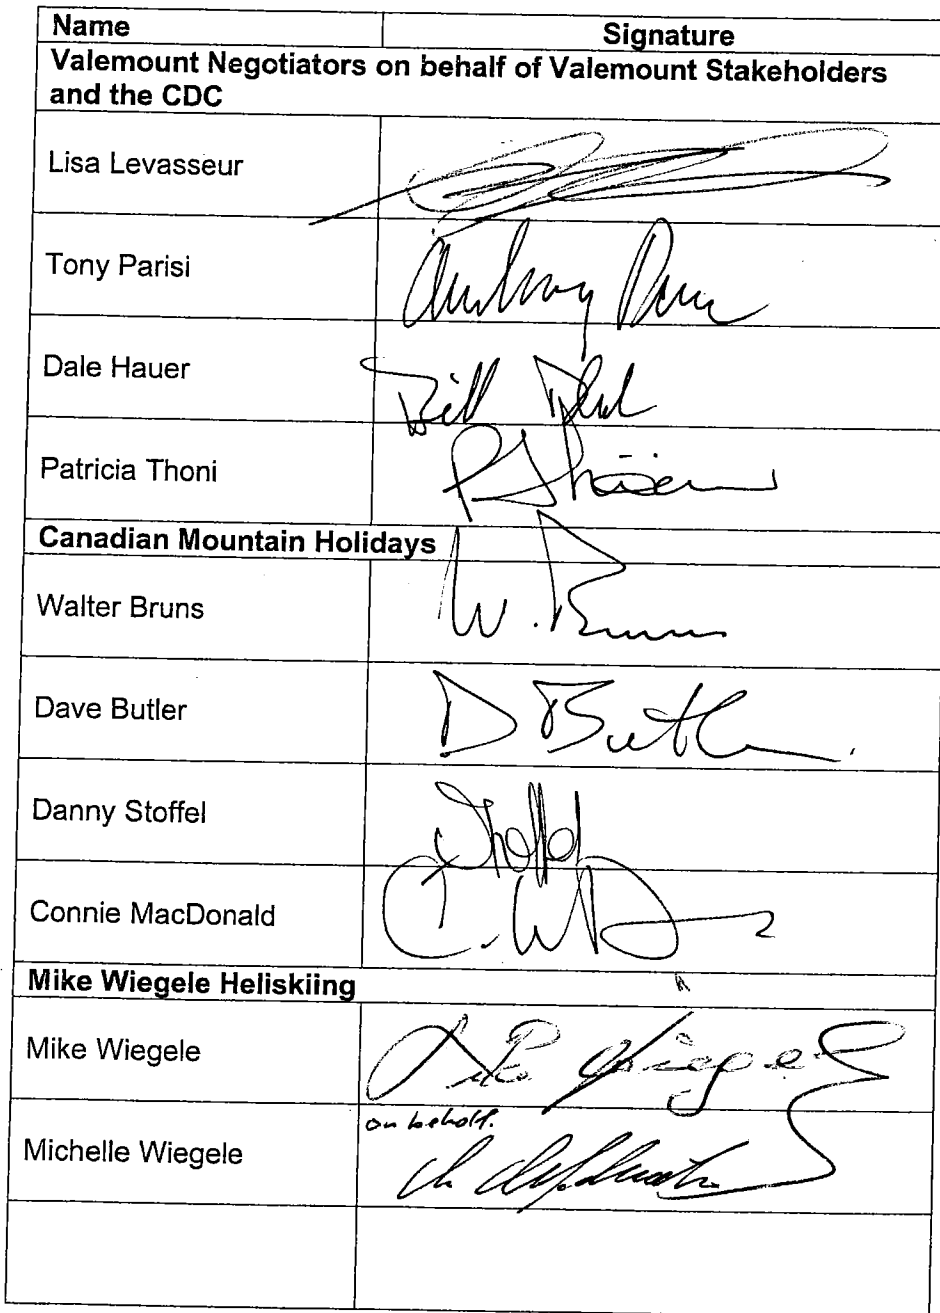 Name Signature
Valemount Negotiators on behalf of Valemount Stakeholders
and the CDC
Lisa Levasseur
Tony Parisi
Dale Hauer Bill
Patricia Thoni
Canadian Mountain Holidays
Walter Bruns W. Bruns
Dave Butler D Butler
Danny Stoffel
Connie MacDonald
Mike Wiegele Heliskiing
Mike Wiegele Mike Wiegele
on behalf.
Michelle Wiegele